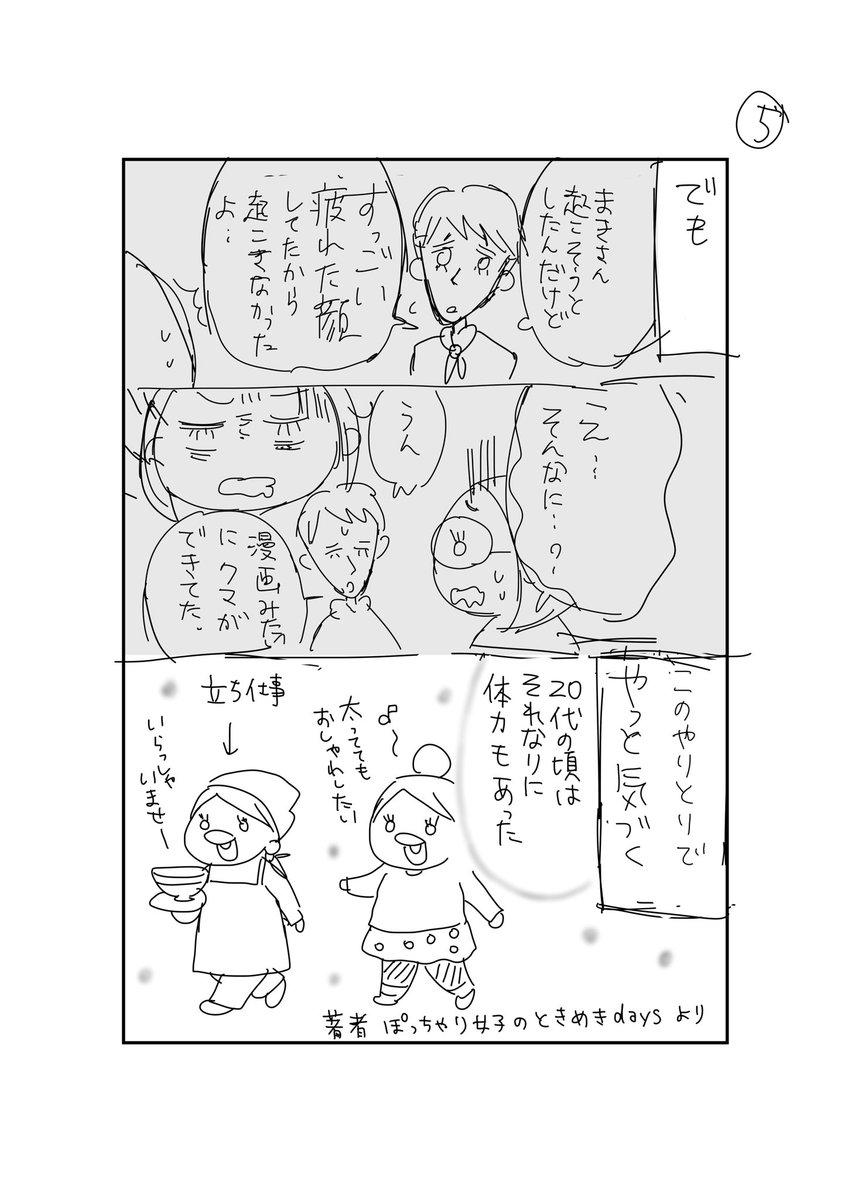 5
でも
まきさん
起こそうと
したんだけど
すっごい
疲れた顔
してたから
起こさなかった
よ〜
え…
そんなに…?
うん
漫画みたい
にクマが
できてた。
このやりとりで
やっと気づく
20代の頃は
それなりに
体力もあった
♪〜
太ってても
おしゃれしたい
立ち仕事
↓
いらっしゃ
いませー
著者 ぽっちゃり女子のときめきdays より